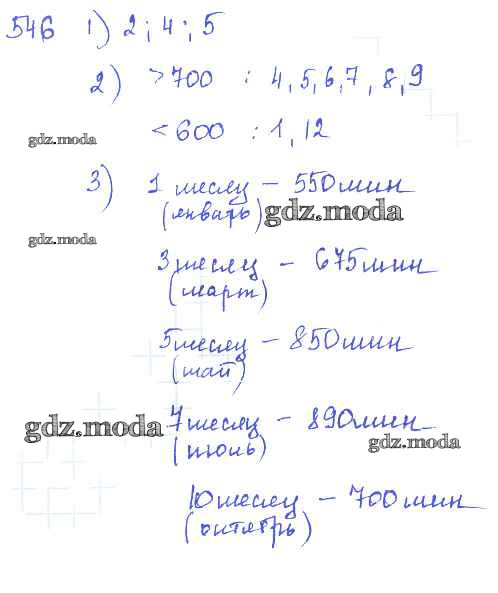 546 1) 2; 4; 5
2) > 700 : 4, 5, 6, 7, 8, 9
< 600 : 1, 12
gdz.moda
3) 1 месяц – 550 мин
(январь) gdz.moda
gdz.moda
3 месяц – 675 мин
(март)
5 месяц – 850 мин
(май)
7 месяц – 890 мин
gdz.moda
(июль) gdz.moda
10 месяц – 700 мин
(октябрь)